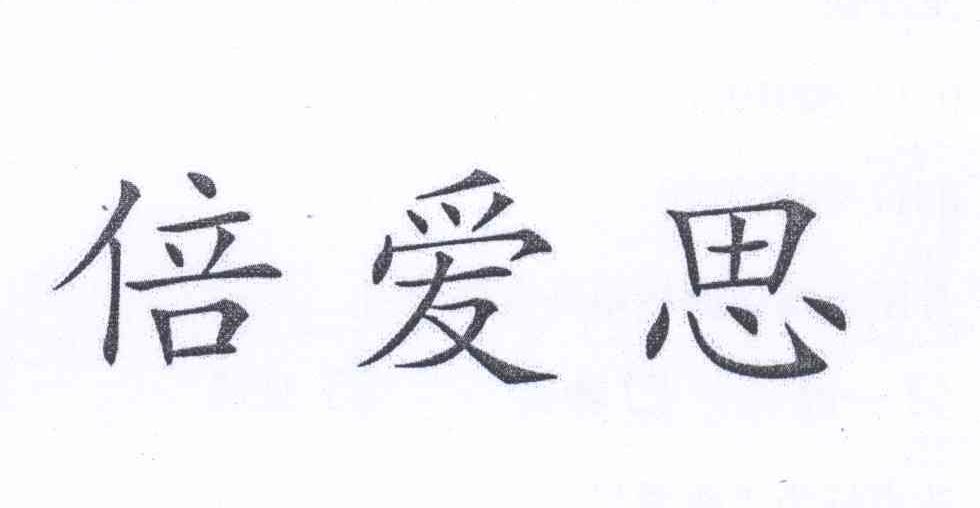 倍爱思